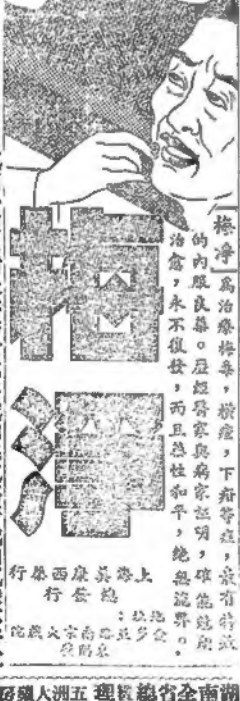 「梅淨」為治療梅毒,橫痃,下疳等症,最有特效
的內服良藥。歷經醫家與病家証明,確能
治愈,永不復發,而且藥性和平,絕無流弊。
梅淨
上海英康西藥行
總發行
地址:
湖南全省總經理 五洲大藥房